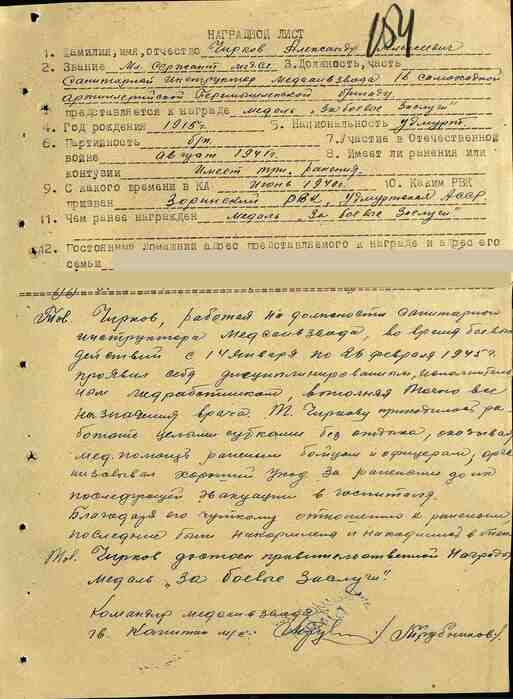 НАГРАДНОЙ ЛИСТ
184
1. Фамилия, имя, отчество Чирков Александр Алексеевич
2. Звание Мл. Сержант мед.сл. 3. Должность, часть
Санитарный инструктор Медсанвзвода 16 самоходной
артиллерийской Перемышленской бригады
представляется к награде медаль „За боевые Заслуги"
4. Год рождения 1915г. 5. Национальность удмурт
6. Партийность б/п. 7. Участие в Отечественной
войне август 1941г. 8. Имеет ли ранения или
контузии Имеет три ранения.
9. С какого времени в КА Июнь 1940г. 10. Каким РВК
призван РВК, Удмуртская АССР.
11. Чем ранее награжден медаль „За боевые Заслуги"
12. Постоянный домашний адрес представляемого к награде и адрес его
семьи
Тов. Чирков, работая на должности санитарного
инструктора Медсанвзвода, во время боевых
действий с 14 января по 26 февраля 1945г.
проявил себя дисциплинированным, исполнитель
ным медработником, выполняя точно все
назначения врача. Т. Чиркову приходилось ра-
ботать целыми сутками без отдыха, оказывал
мед. помощь раненым бойцам и офицерам, орга
низовывал хороший уход за ранеными до их
последующей эвакуации в госпиталя.
Благодаря его чуткому отношению к раненым,
последние были накормлены и находились в
Тов. Чирков достоин правительственной Награды
медаль „За боевые Заслуги".
Командир медсанвзвода
гв. Капитан м/с: /Трубников/